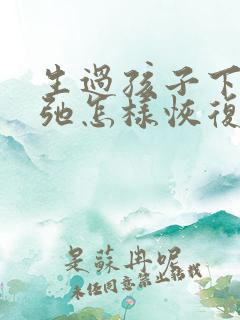 生過孩子下
弛怎樣恢復
是蘇冉呢
未经同意禁止转载